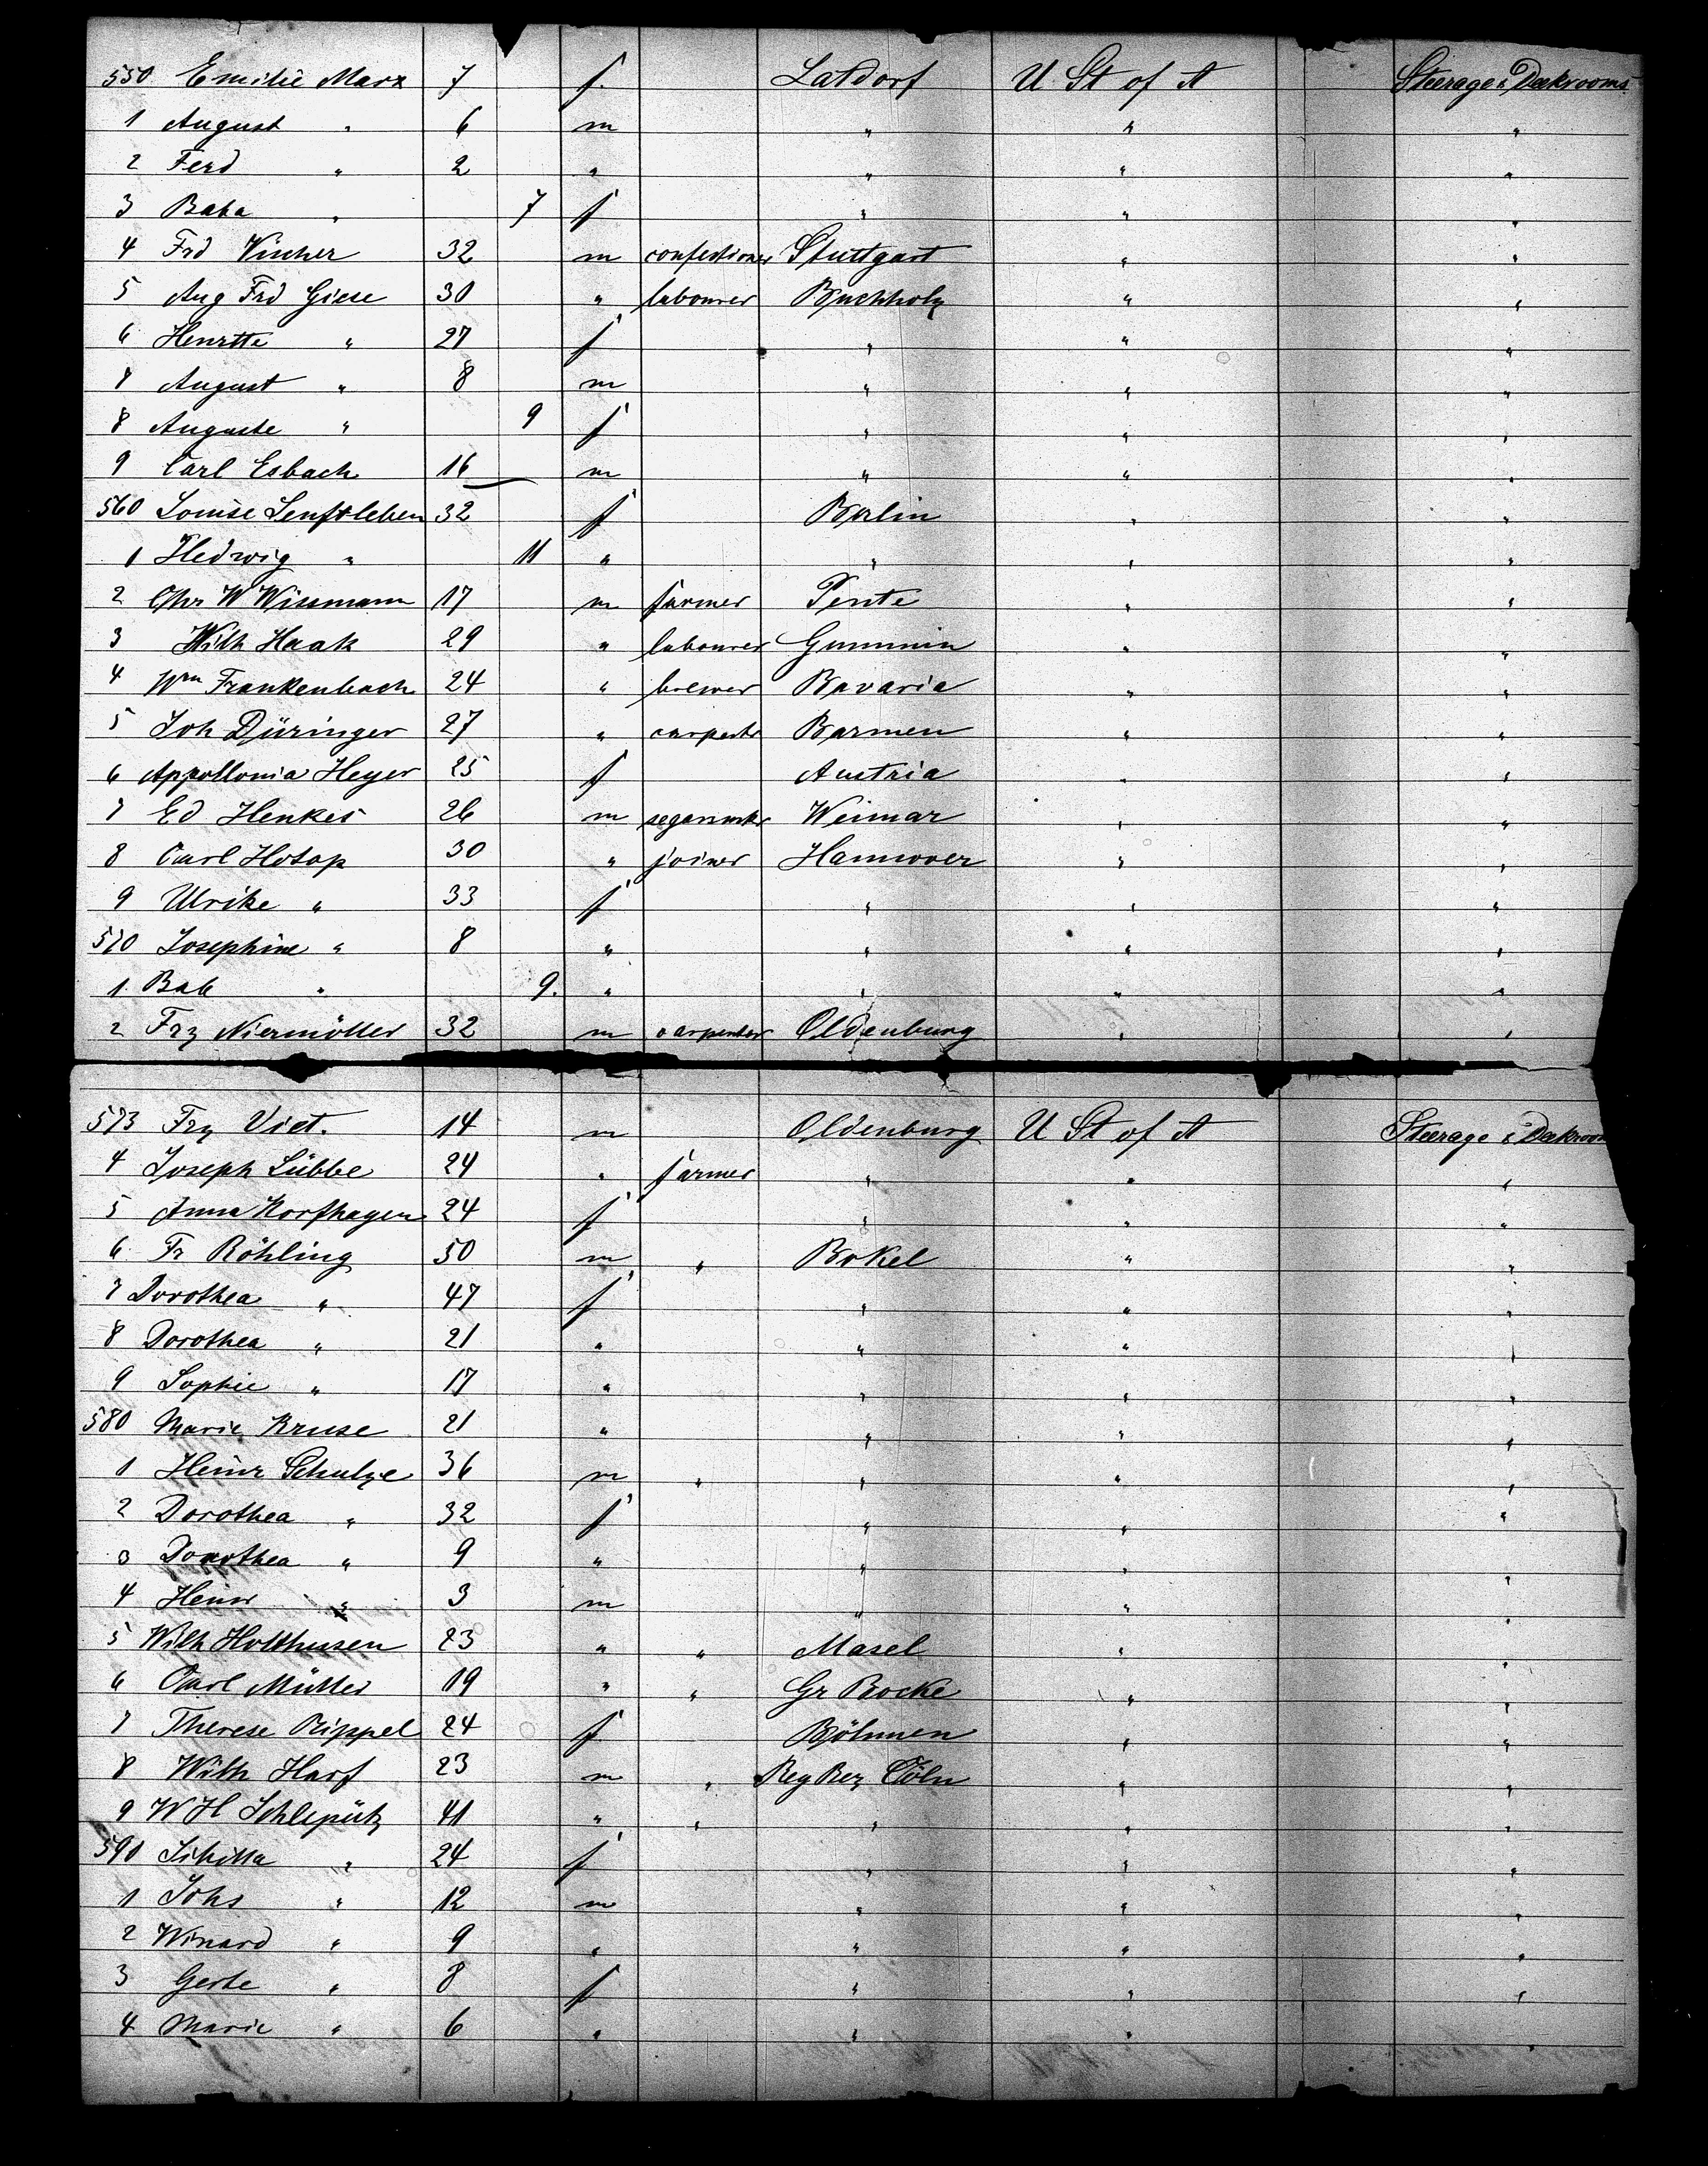 550 Emilie Marx 7 f. Latdorf U. St of A Steerage & Deckrooms
1 August " 6 m " " "
2 Ferd " 2 " " " "
3 Baba " 7 f " " "
4 Frd Vischer 32 m confectioner Stuttgart " "
5 Aug Frd Giese 30 " labourer Buchholz " "
6 Henrtte " 27 f " " "
7 August " 8 m " " "
8 Auguste " 9 f " " "
9 Carl Esbach 16 m " " "
560 Louise Senftleben 32 f Berlin " "
1 Hedwig " 11 " " " "
2 Chr W Wissmann 17 m farmer Pente " "
3 Wilh Haak 29 " labourer Gummin " "
4 Wm Frankenbach 24 " brewer Bavaria " "
5 Joh Düringer 27 " carpentr Barmen " "
6 Appollonia Heyer 25 f Austria " "
7 Ed Henkes 26 m segarmakr Weimar " "
8 Carl Hotop 30 " joiner Hannover " "
9 Ulrike " 33 f " " "
570 Josephine " 8 " " " "
1 Bab " 9. " " " "
2 Frz Niermöller 32 m carpenter Oldenburg " "
573 Frz Viet. 14 m Oldenburg U St of A Steerage & Deckroom
4 Joseph Lübbe 24 " farmer " " "
5 Anna Korfhagen 24 f " " "
6 Fr Röhling 50 m " Bokel " "
7 Dorothea " 47 f " " "
8 Dorothea " 21 " " " "
9 Sophie " 17 " " " "
580 Marie Kruse 21 " " " "
1 Heinr Schulze 36 m " " " "
2 Dorothea " 32 f " " "
3 Dorothea " 9 " " " "
4 Heinr " 3 m " " "
5 Wilh Holthusen 23 " " Masel " "
6 Carl Müller 19 " " Gr Bocke " "
7 Therese Rippel 24 f. Böhmen " "
8 Wilh Harf 23 m " Reg Bez Cöln " "
9 W H Schlepütz 41 " " " " "
590 Sibilla " 24 f " " "
1 Johs " 12 m " " "
2 Winard " 9 " " " "
3 Gerte " 8 f " " "
4 Marie " 6 " " "